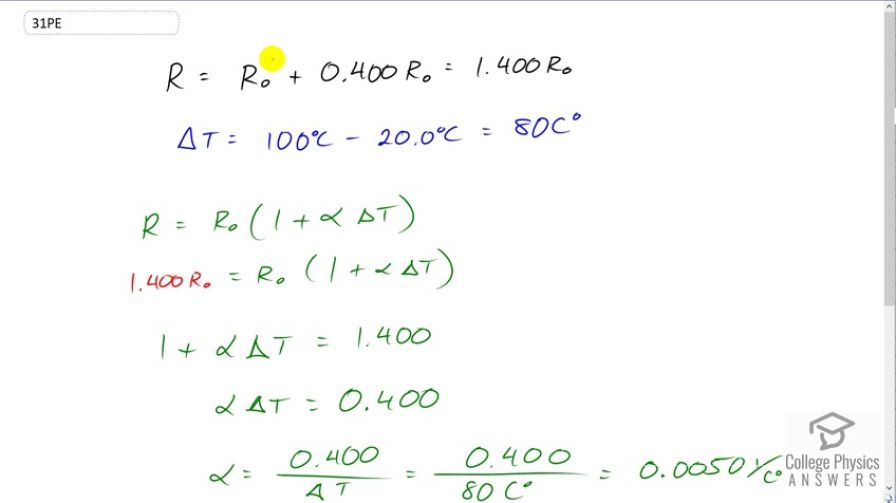 31PE
R = R₀ + 0.400 R₀ = 1.400 R₀
ΔT = 100°C − 20.0°C = 80C°
R = R₀ (1 + α ΔT)
1.400 R₀ = R₀ (1 + α ΔT)
1 + α ΔT = 1.400
α ΔT = 0.400
α = 0.400 / ΔT = 0.400 / 80 C° = 0.0050 1/C°
College Physics
ANSWERS